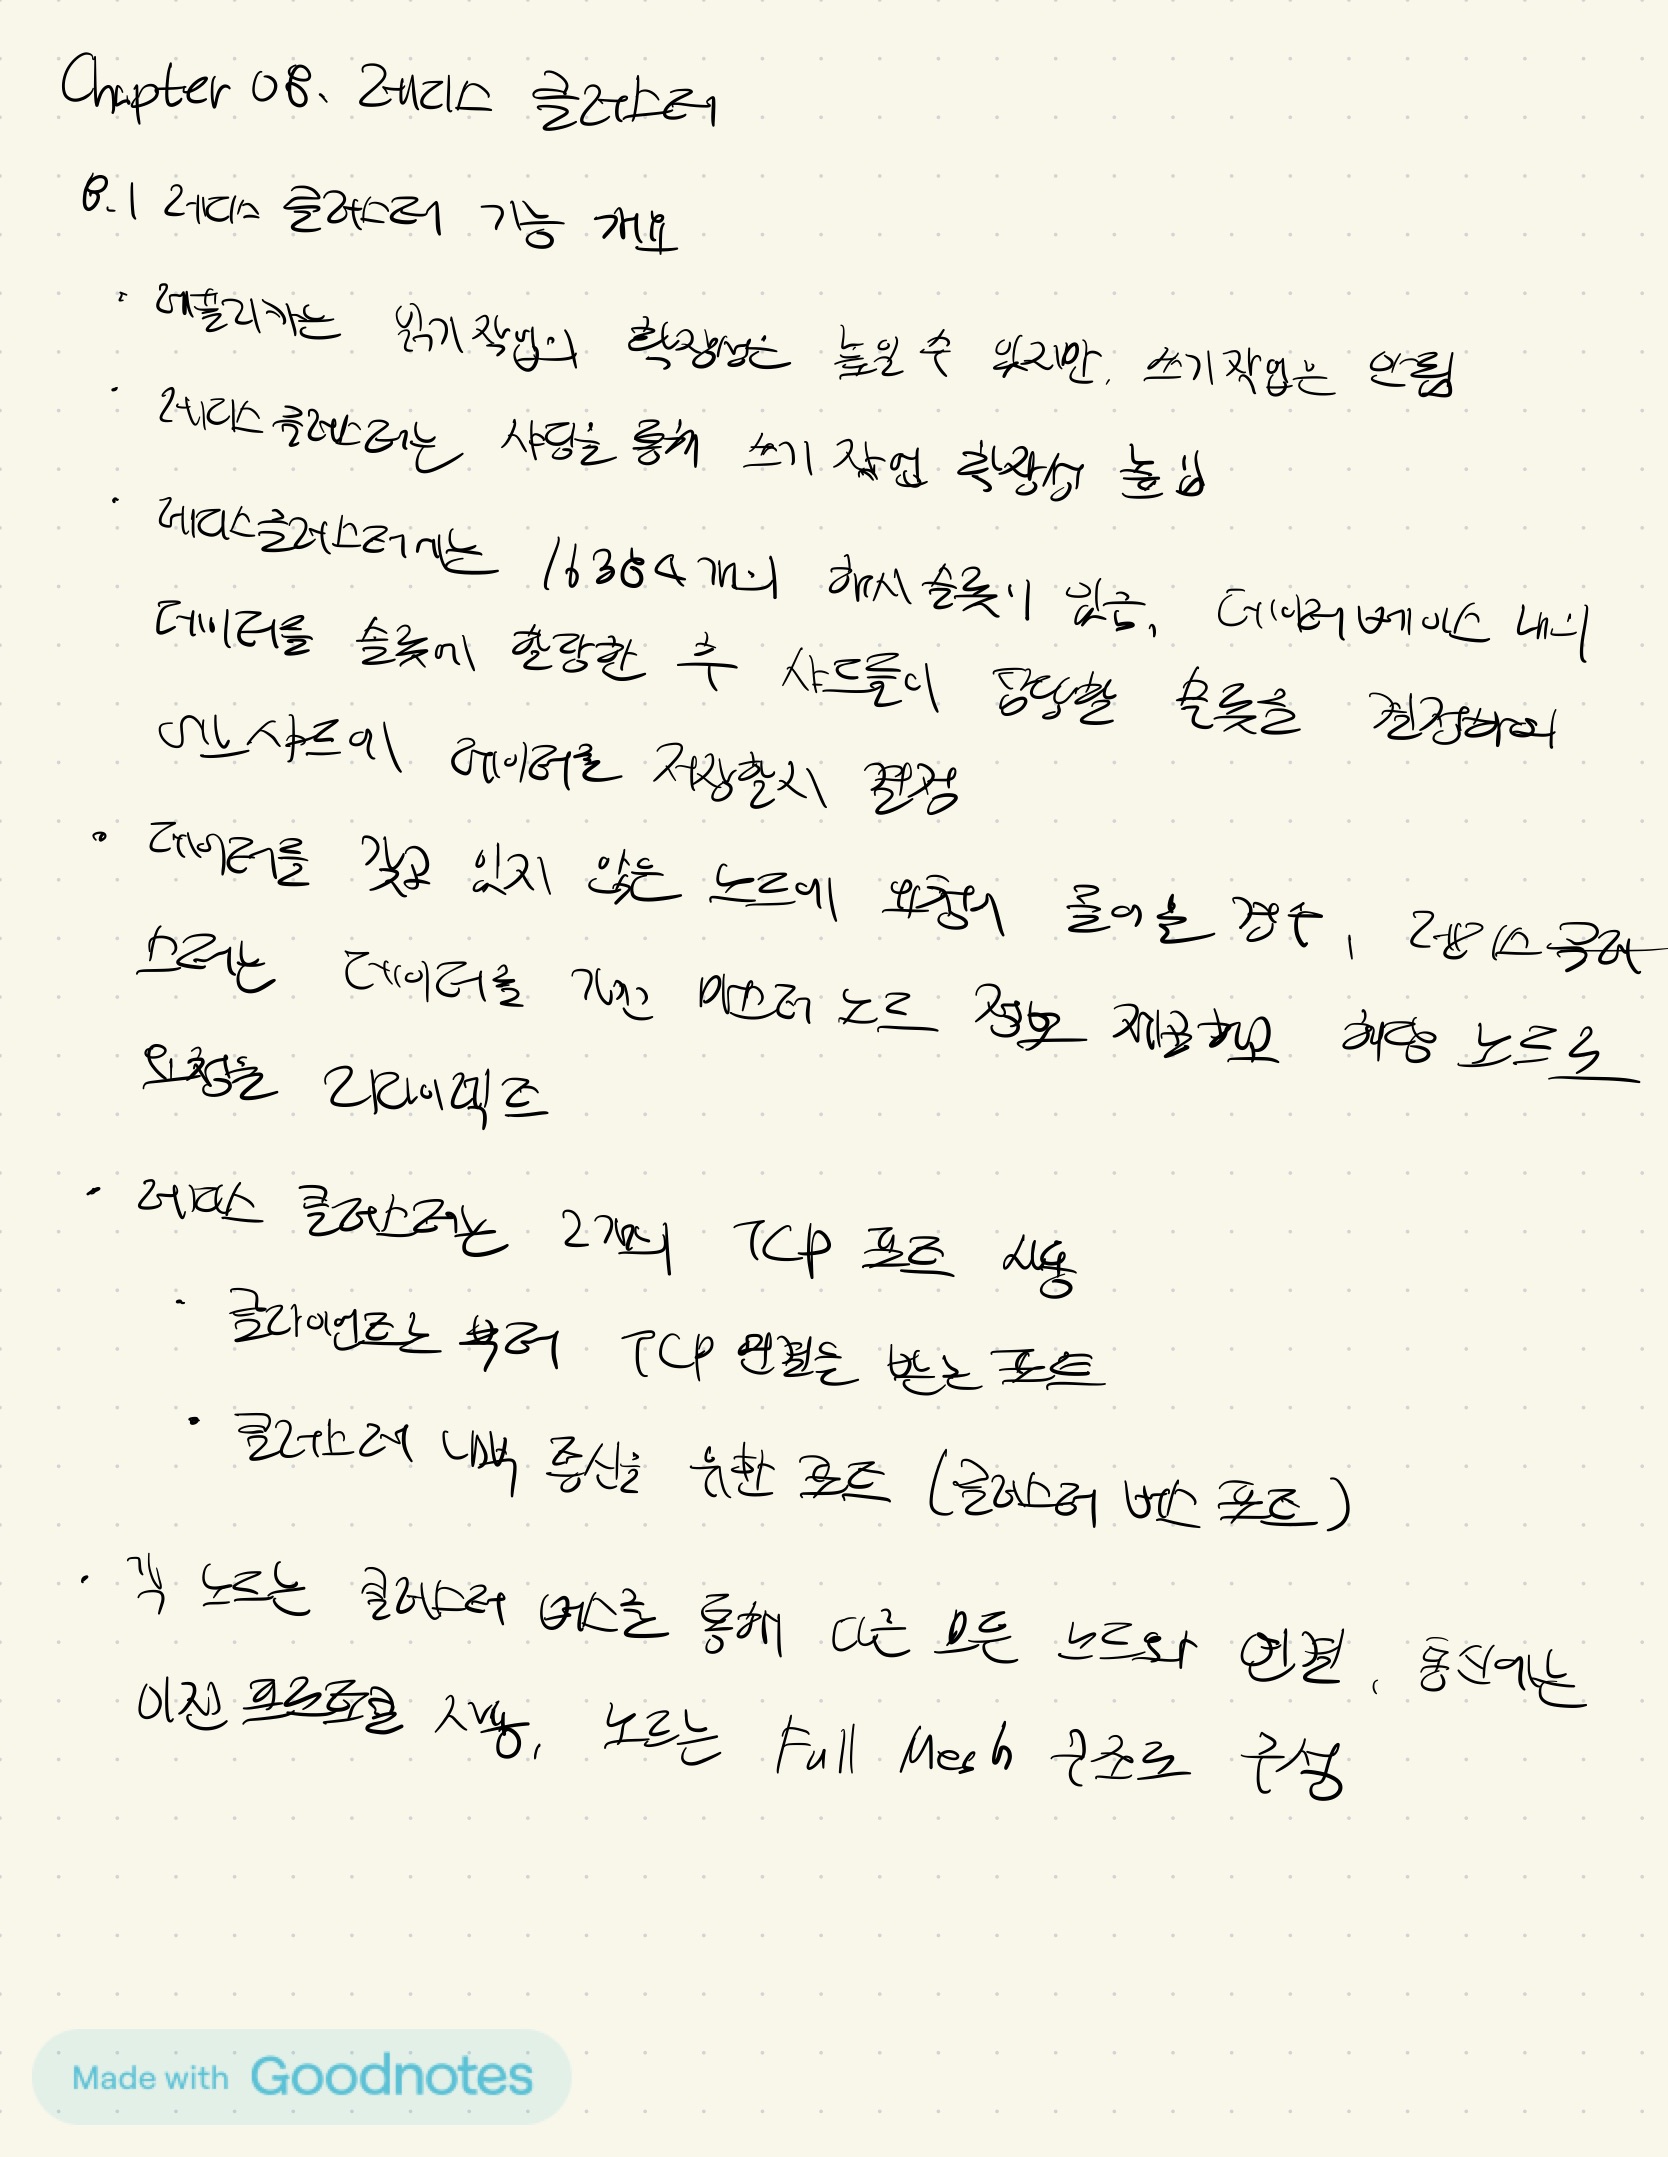 Chapter 08. 레디스 클러스터
8.1 레디스 클러스터 기능 개요
· 레플리카는 읽기 작업의 확장성은 높일 수 있지만, 쓰기 작업은 안됨
· 레디스 클러스터는 샤딩을 통해 쓰기 작업 확장성 높임
· 레디스클러스터에는 16384개의 해시 슬롯이 있음, 데이터베이스 내의
데이터를 슬롯에 할당한 후 샤드들이 담당할 슬롯을 결정하여
어느 샤드에 데이터를 저장할지 결정
· 데이터를 갖고 있지 않은 노드에 요청이 들어올 경우, 레디스 클러
스터는 데이터를 가진 마스터 노드 정보 제공하고 해당 노드로
요청을 리다이렉트
· 레디스 클러스터는 2개의 TCP 포트 사용
· 클라이언트는 부터 TCP 연결을 받는 포트
· 클러스터 내부 통신을 위한 포트 (클러스터 버스 포트)
· 각 노드는 클러스터 버스를 통해 다른 모든 노드와 연결, 통신에는
이진 프로토콜 사용, 노드는 Full Mesh 구조로 구성
Made with Goodnotes